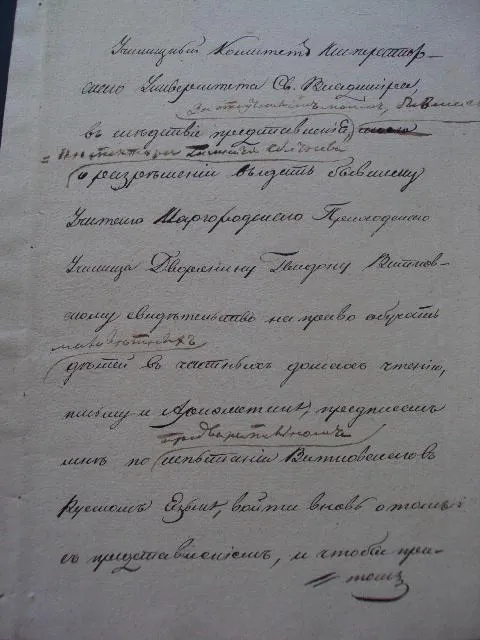 Училищный Комитетъ Император-
скаго Университета Св. Владиміра,
въ слѣдствіе представленія
о разрѣшеніи выдать бывшему
Учителю Миргородскаго Приходскаго
Училища Дворянину Гвидону Витков-
скому свидѣтельство на право обучать
малолѣтнихъ
дѣтей въ частныхъ домахъ чтенію,
письму и Ариѳметикѣ, предписалъ
предварительномъ
мнѣ по испытаніи Витковскаго въ
Русскомъ Языкѣ, войти вновь о томъ
съ представленіемъ, и чтобы при-
томъ